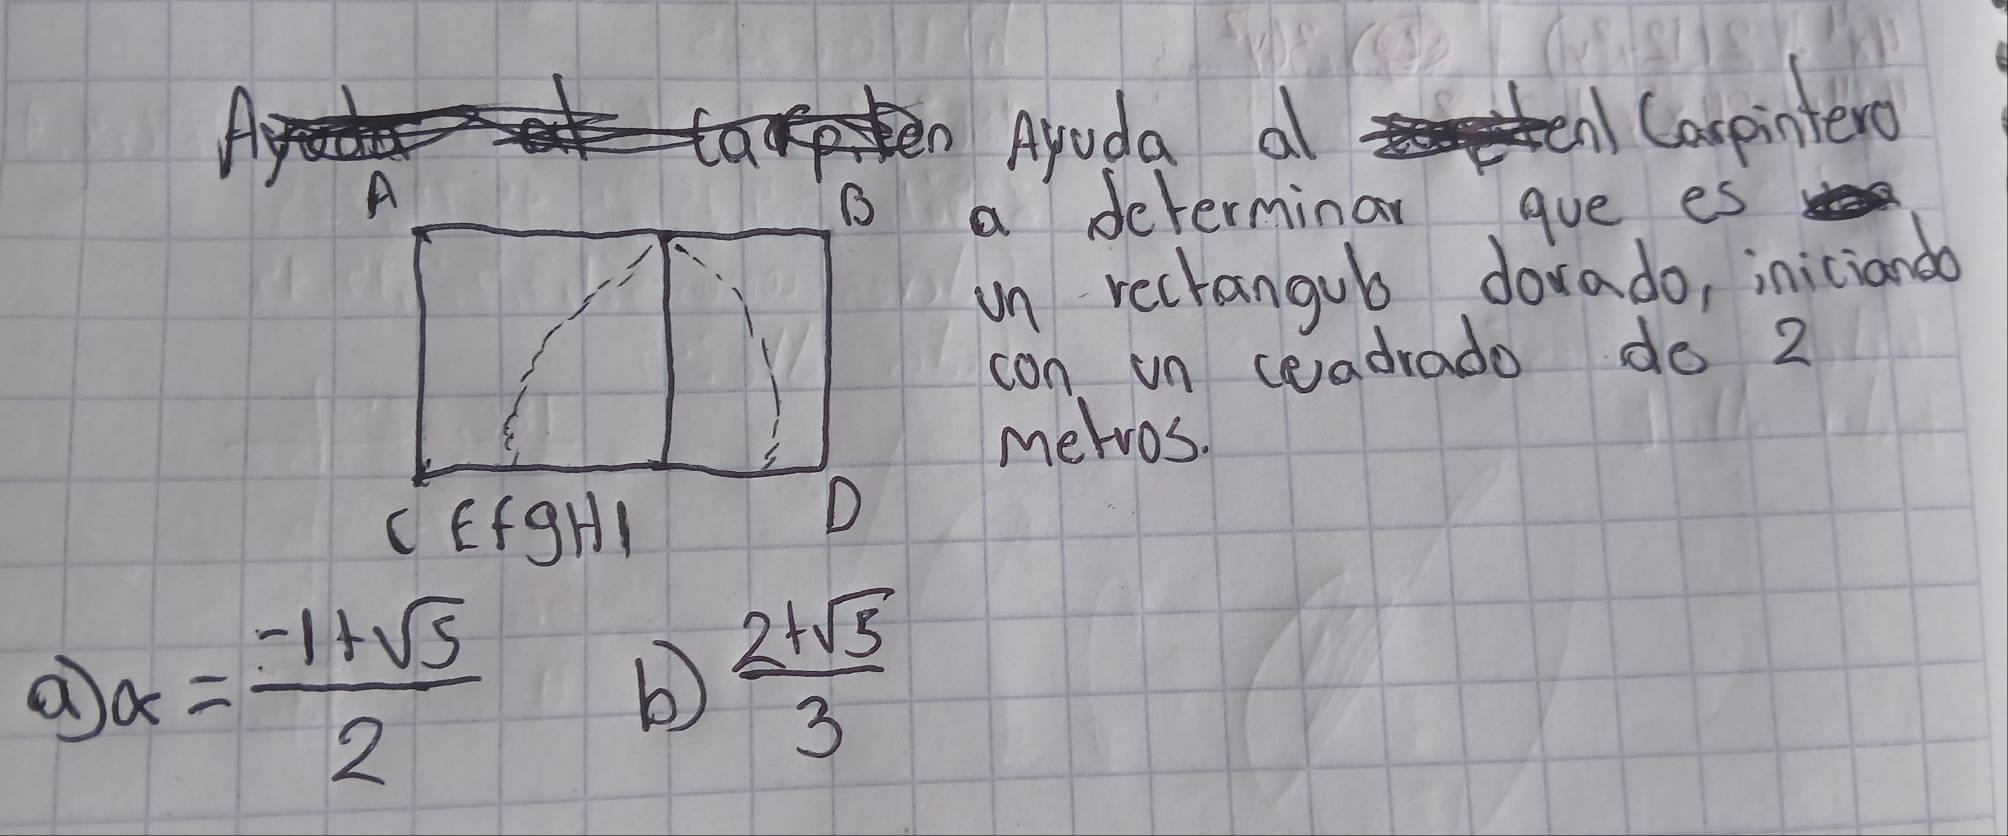 Ayuda al Carpintero
A
B
a determinar que es
un rectangulo dorado, iniciando
con un cuadrado de 2
metros.
C E f g H I
D
a) α = \frac{-1+\sqrt{5}}{2} b) \frac{2+\sqrt{5}}{3}